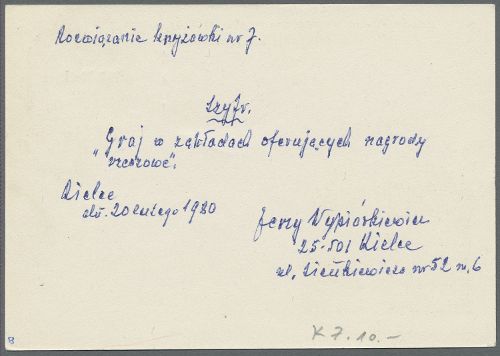 Rozwiązanie krzyżówki nr 7.
Szyfr.
„Graj w zakładach oferujących nagrody
rzeczowe".
Kielce
dn. 20 lutego 1980
Jerzy
25-501 Kielce
ul. Sienkiewicza nr 52 m. 6
K 7. 10.-
B